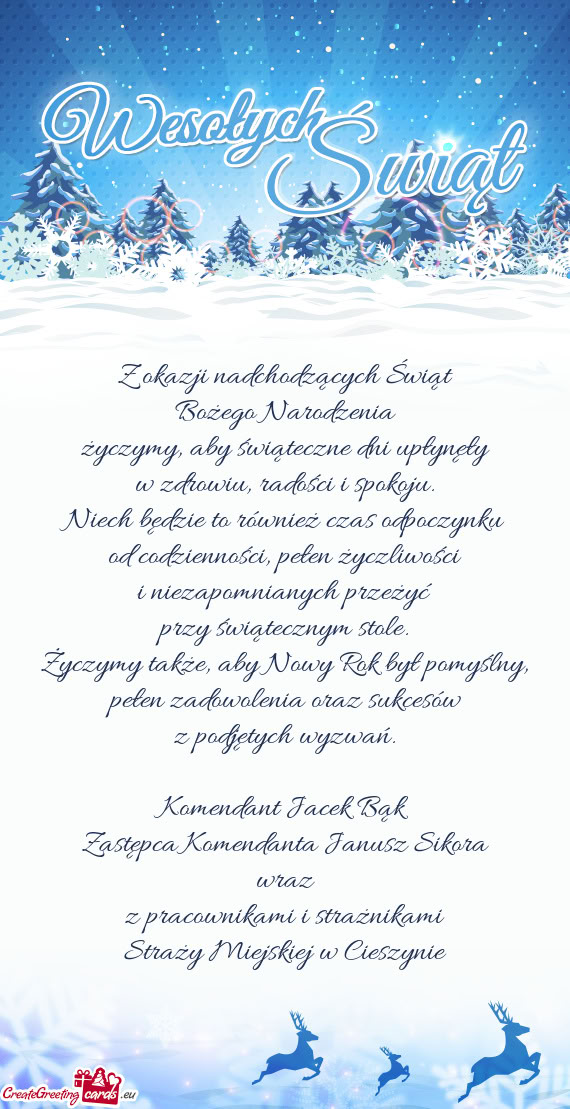 Wesołych
Świąt
Z okazji nadchodzących Świąt
Bożego Narodzenia
życzymy, aby świąteczne dni upłynęły
w zdrowiu, radości i spokoju.
Niech będzie to również czas odpoczynku
od codzienności, pełen życzliwości
i niezapomnianych przeżyć
przy świątecznym stole.
Życzymy także, aby Nowy Rok był pomyślny,
pełen zadowolenia oraz sukcesów
z podjętych wyzwań.
Komendant Jacek Bąk
Zastępca Komendanta Janusz Sikora
wraz
z pracownikami i strażnikami
Straży Miejskiej w Cieszynie
CreateGreeting cards .eu